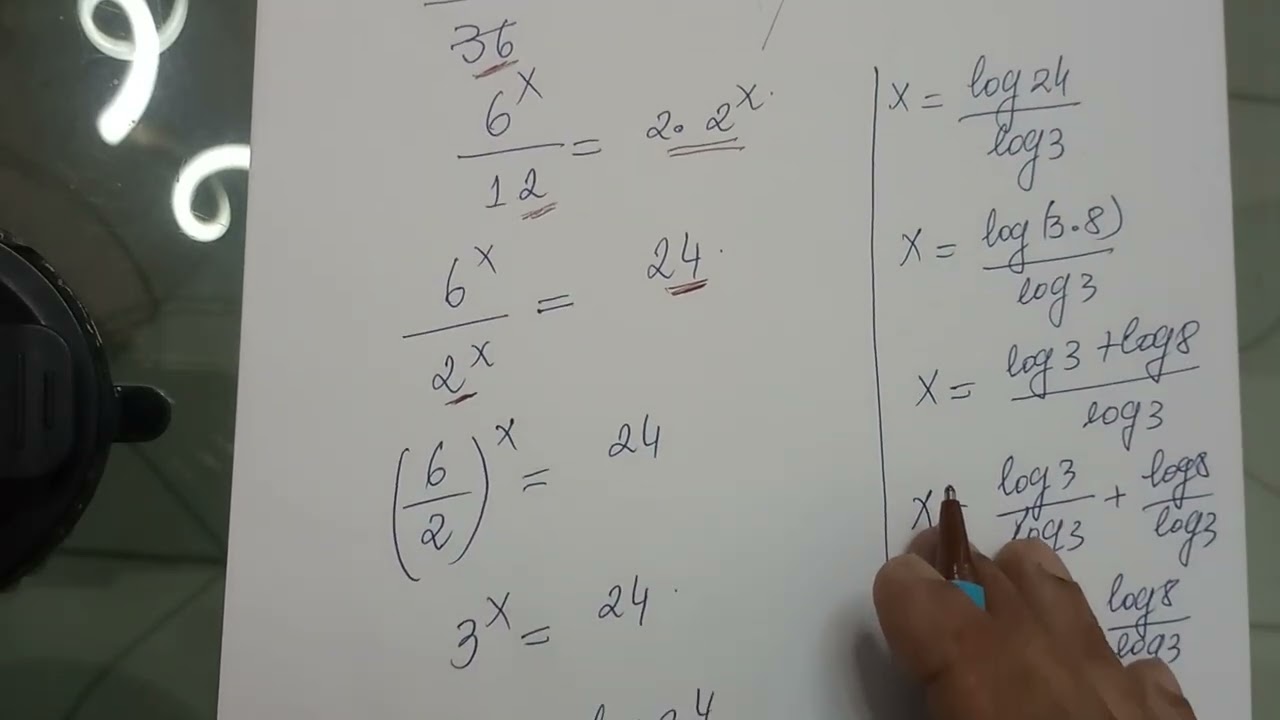 36
6^x / 12 = 2 · 2^x
6^x / 2^x = 24
(6/2)^x = 24
3^x = 24
log 24
x = log 24 / log 3
x = log(3·8) / log 3
x = (log 3 + log 8) / log 3
x = log 3 / log 3 + log 8 / log 3
log 8 / log 3